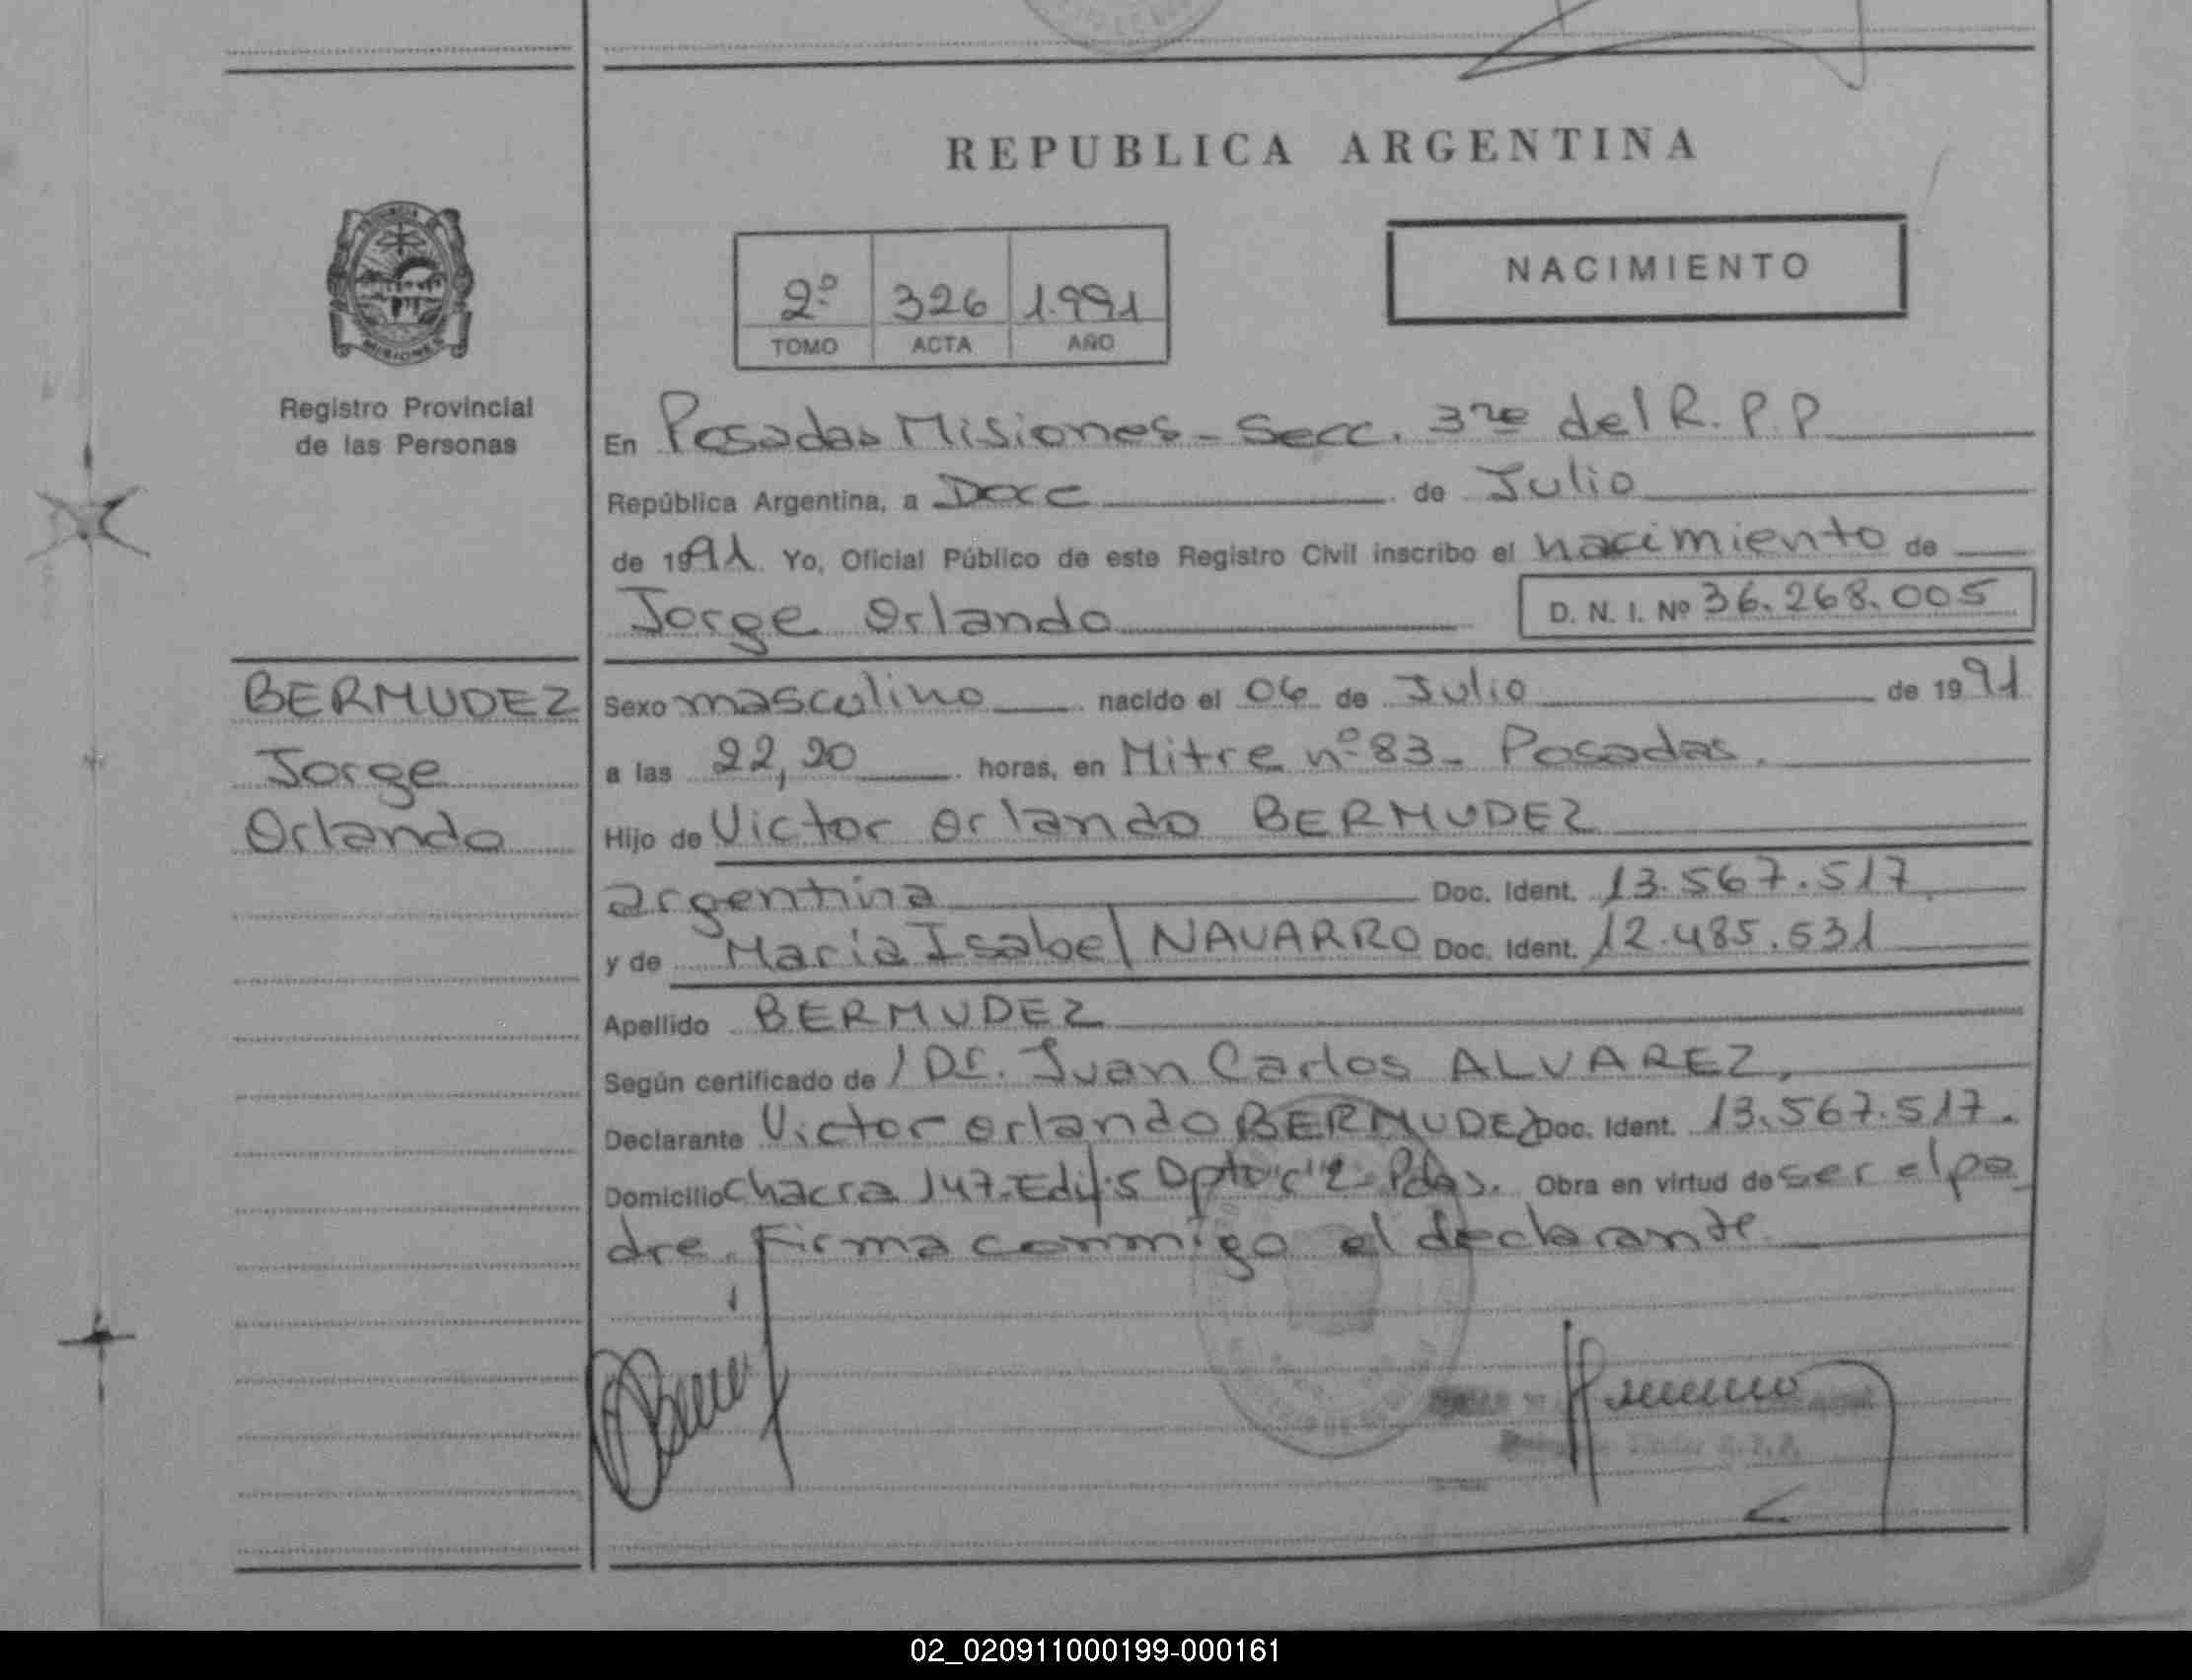 REPUBLICA ARGENTINA
MISIONES
Registro Provincial
de las Personas
2º 326 1.991
TOMO ACTA AÑO
NACIMIENTO
En Posadas Misiones - Secc. 3ra del R.P.P
República Argentina, a Doce de Julio
de 1991 Yo, Oficial Público de este Registro Civil inscribo el nacimiento de
Jorge Orlando D. N. I. Nº 36.268.005
BERMUDEZ
Jorge
Orlando
Sexo masculino nacido el 06 de Julio de 1991
a las 22,20 horas, en Mitre nº 83 - Posadas.
Hijo de Victor Orlando BERMUDEZ
argentina Doc. Ident. 13.567.517
y de Maria Isabel NAVARRO Doc. Ident. 12.485.531
Apellido BERMUDEZ
Según certificado de / Dr. Juan Carlos ALVAREZ,
Declarante Victor Orlando BERMUDEZ Doc. Ident. 13.567.517.
Domicilio Chacra 147-Edif.5 Dpto "2- Pdas. Obra en virtud de ser el pa
dre. Firma conmigo el declarante
02_020911000199-000161